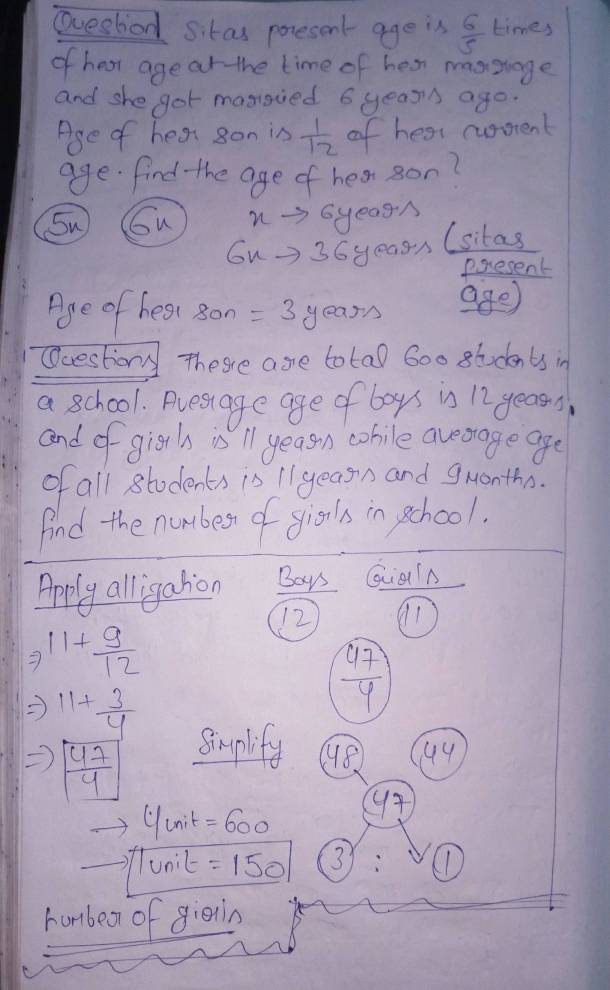 Question Sitas present age is 6/5 times
of her age at the time of her marriage
and she got married 6 years ago.
Age of her son is 1/12 of her current
age. find the age of her son?
5x 6x x → 6 years
6x → 36 years (sitas present age)
Age of her son = 3 years
Questions There are total 600 students in
a school. Average age of boys is 12 years,
and of girls is 11 years while average age
of all students is 11 years and 9 months.
find the number of girls in school.
Apply alligation Boys Girls
12 11
⇒ 11 + 9/12
47/4
⇒ 11 + 3/4
⇒ 47/4 Simplify 48 44
47
→ 4 unit = 600
→ 1 unit = 150 3 : 1
number of girls